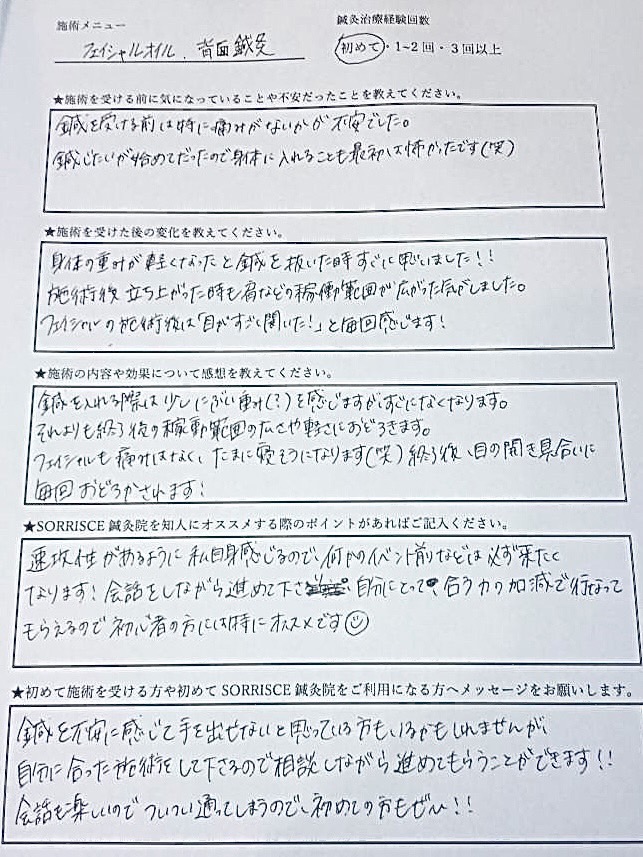 施術メニュー
フェイシャルオイル、背面鍼灸
鍼灸治療経験回数
初めて・1~2回・3回以上
★施術を受ける前に気になっていることや不安だったことを教えてください。
鍼を受ける前は特に痛みがないかが不安でした。
鍼じたいが始めてだったので身体に入れることも最初は怖かったです(笑)
★施術を受けた後の変化を教えてください。
身体の重みが軽くなったと鍼を抜いた時すぐに思いました!!
施術後立ち上がった時も肩などの稼働範囲が広がった気がしました。
フェイシャルの施術後は「目がすごく開いた!」と毎回感じます!
★施術の内容や効果について感想を教えてください。
鍼を入れる際は少しにぶい重み(?)を感じますがすぐになくなります。
それよりも終る後の稼動範囲の広さや軽さにおどろきます。
フェイシャルも痛みはなく、たまに寝そうになります(笑)終る後、目の開き具合いに
毎回おどろかされます!
★SORRISCE鍼灸院を知人にオススメする際のポイントがあればご記入ください。
速攻性があるように私自身感じるので、何かのイベント前などは必ず来たく
なります!会話をしながら進めて下さ 自分にとって 合う力の加減で行なって
もらえるので初心者の方には特にオススメです☺
★初めて施術を受ける方や初めてSORRISCE鍼灸院をご利用になる方へメッセージをお願いします。
鍼を不安に感じて手を出せないと思っている方もいるかもしれませんが、
自分に合った施術をして下さるので相談しながら進めてもらうことができます!!
会話も楽しいのでついつい通ってしまうので、初めての方もぜひ!!